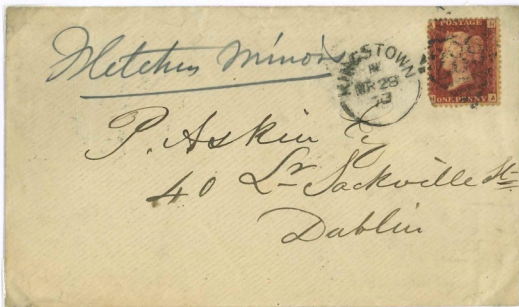 Fletcher Minors
KINGSTOWN
MR 28
73
POSTAGE
ONE PENNY
P. Askin
40 Lr Sackville St
Dublin